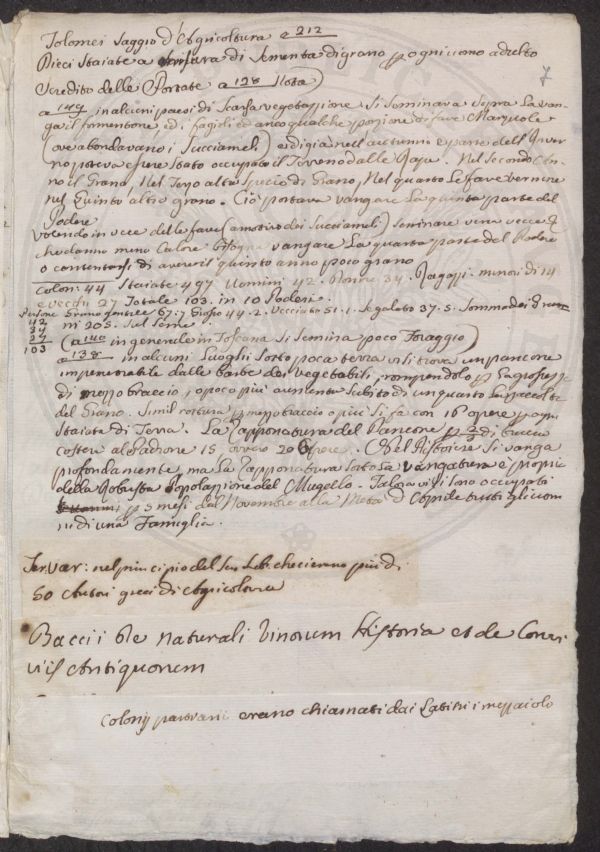 Tolomei Saggio d'Agricoltura a 212
7
Dieci Staiate a misura di Sementa di grano p ogni uomo adulto
Scredito delle Portate a 128 Nota)
a 149 in alcuni paesi di Scarsa vegetazione Si Seminava Sopra La van-
ga il formentone ed i fagioli ed anco qualche porzione di fave Marzuole
(ove abondavano i Succiameli) e di già nell'autunno e parte dell'Inver
no poteva essere Stato occupato il Terreno dalle Rape. Nel Secondo An-
no il Grano, Nel Terzo altra Specie di Grano, Nel quarto Le fave vernine
nel Quinto altro grano. Ciò portava vangare La quinta parte del
Podere
Volendo in vece delle fave (a motivo dei Succiameli) Seminare vena vecce &
che danno meno Calore bisogna vangare La quarta parte del Podere
o contentarsi di avere il quinto anno poco grano
Coloni 44 Staiate 497 Uomini 42. Donne 34. Ragazzi minori di 14
e vecchi 27 Totale 103. in 10 Poderi.
Persone Grano gentile 67:7 Grosso 44.2. Vecciato 51.1. Segalato 37.5. Somma dei Gra
42 ni 205. Sul Seme
34
27 (a 140 in generale in Toscana Si Semina poco Foraggio)
103 a 138 in alcuni Luoghi Sotto poca terra vi si trova un pancone
impenetrabile dalle barbe dei vegetabili, rompendolo p La grossezza
di mezzo braccio, o poco più aumenta Subito di un quarto La raccolta
del Grano. Simil rottura p mezzo braccio o più Si fa con 16 opere p ogni
Staiata di Terra. La Zapponatura del Pancone p 2/3 di braccio
costera al Padrone 15 ovvero 20 Opere. Nel Pistoiese Si vanga
profondamente, ma La Zapponatura Sotto La vangatura è propria
della Robusta Popolazione del Mugello. Talora vi Si Sono occupati
p 3 mesi dal Novembre alla Metà d'Aprile tutti gli uom
ini di una Famiglia.
Ser. Var: nel principio del Suo Lib. che ci erano più di
50 Autori greci di Agricoltura
Baccii de naturali Vinorum Historia et de Convi
viis Antiquorum
Colonij parziarii erano chiamati dai Latini i mezzaiolo